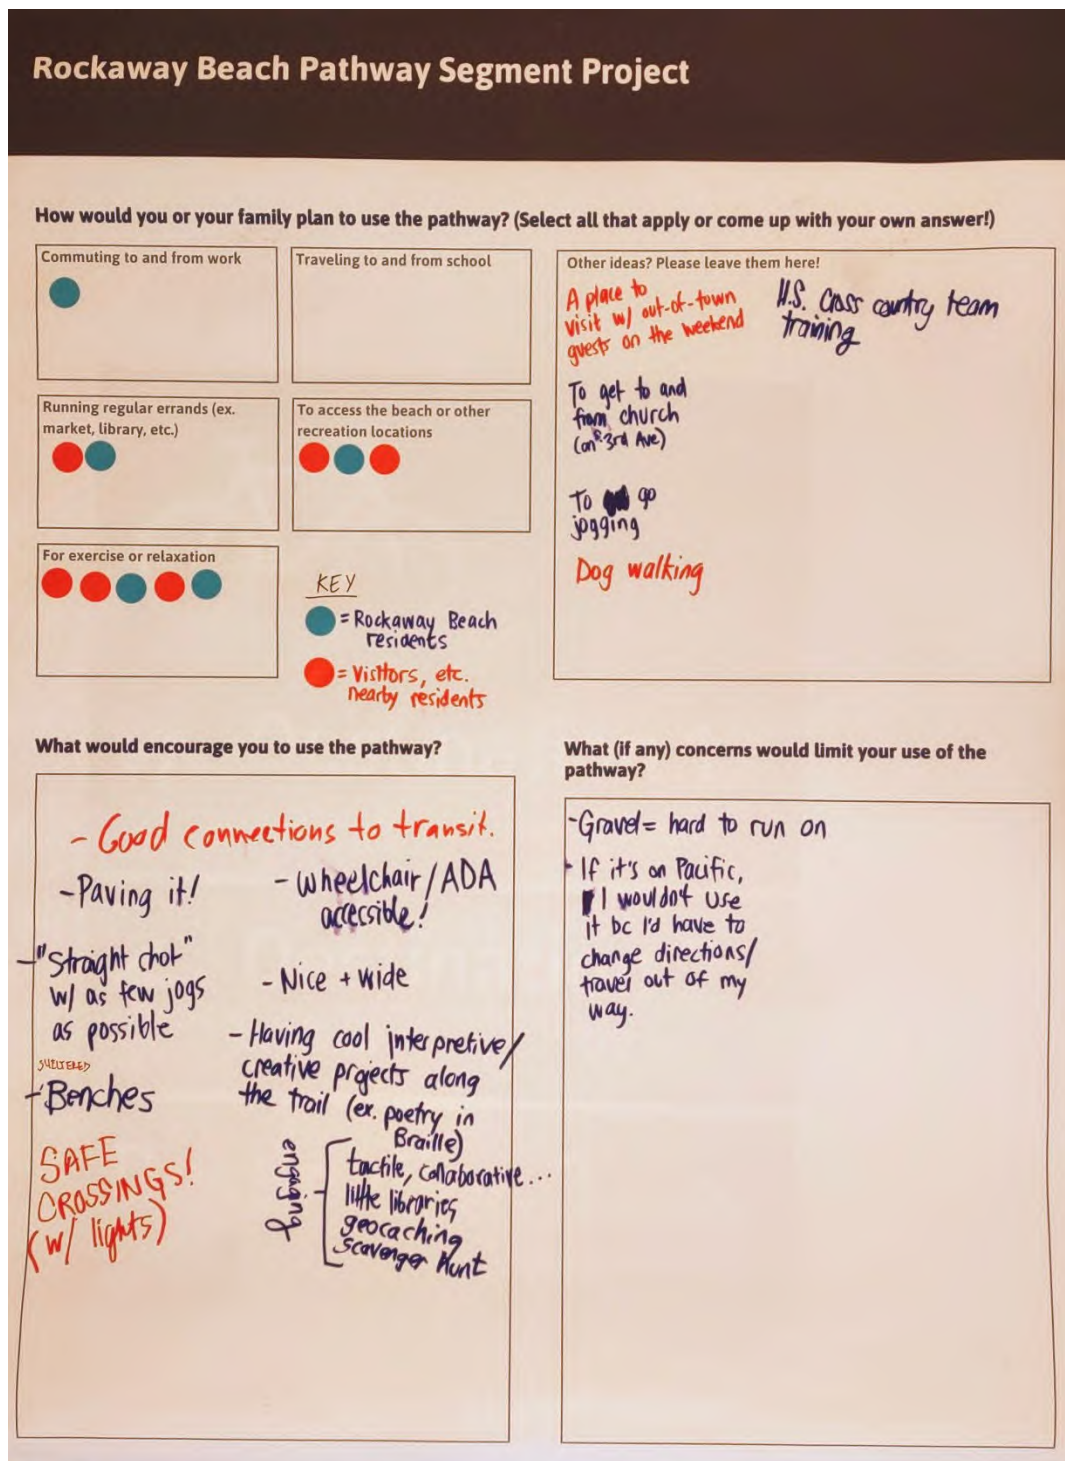 Rockaway Beach Pathway Segment Project
How would you or your family plan to use the pathway? (Select all that apply or come up with your own answer!)
Commuting to and from work
Traveling to and from school
Running regular errands (ex.
market, library, etc.)
To access the beach or other
recreation locations
For exercise or relaxation
KEY
= Rockaway Beach
residents
= Visitors, etc.
nearby residents
Other ideas? Please leave them here!
A place to
visit w/ out-of-town
guests on the weekend
H.S. Cross country team
training
To get to and
from church
(on 3rd Ave)
To go
jogging
Dog walking
What would encourage you to use the pathway?
- Good connections to transit.
- Paving it!
- wheelchair/ADA
accessible!
- "Straight shot"
w/ as few jogs
as possible
- Nice + wide
SHELTERED
- Benches
- Having cool interpretive/
creative projects along
the trail (ex. poetry in
Braille)
engaging
tactile, collaborative...
little libraries
geocaching
scavenger Hunt
SAFE
CROSSINGS!
(w/ lights)
What (if any) concerns would limit your use of the
pathway?
- Gravel = hard to run on
- If it's on Pacific,
I wouldn't use
it bc I'd have to
change directions/
travel out of my
way.